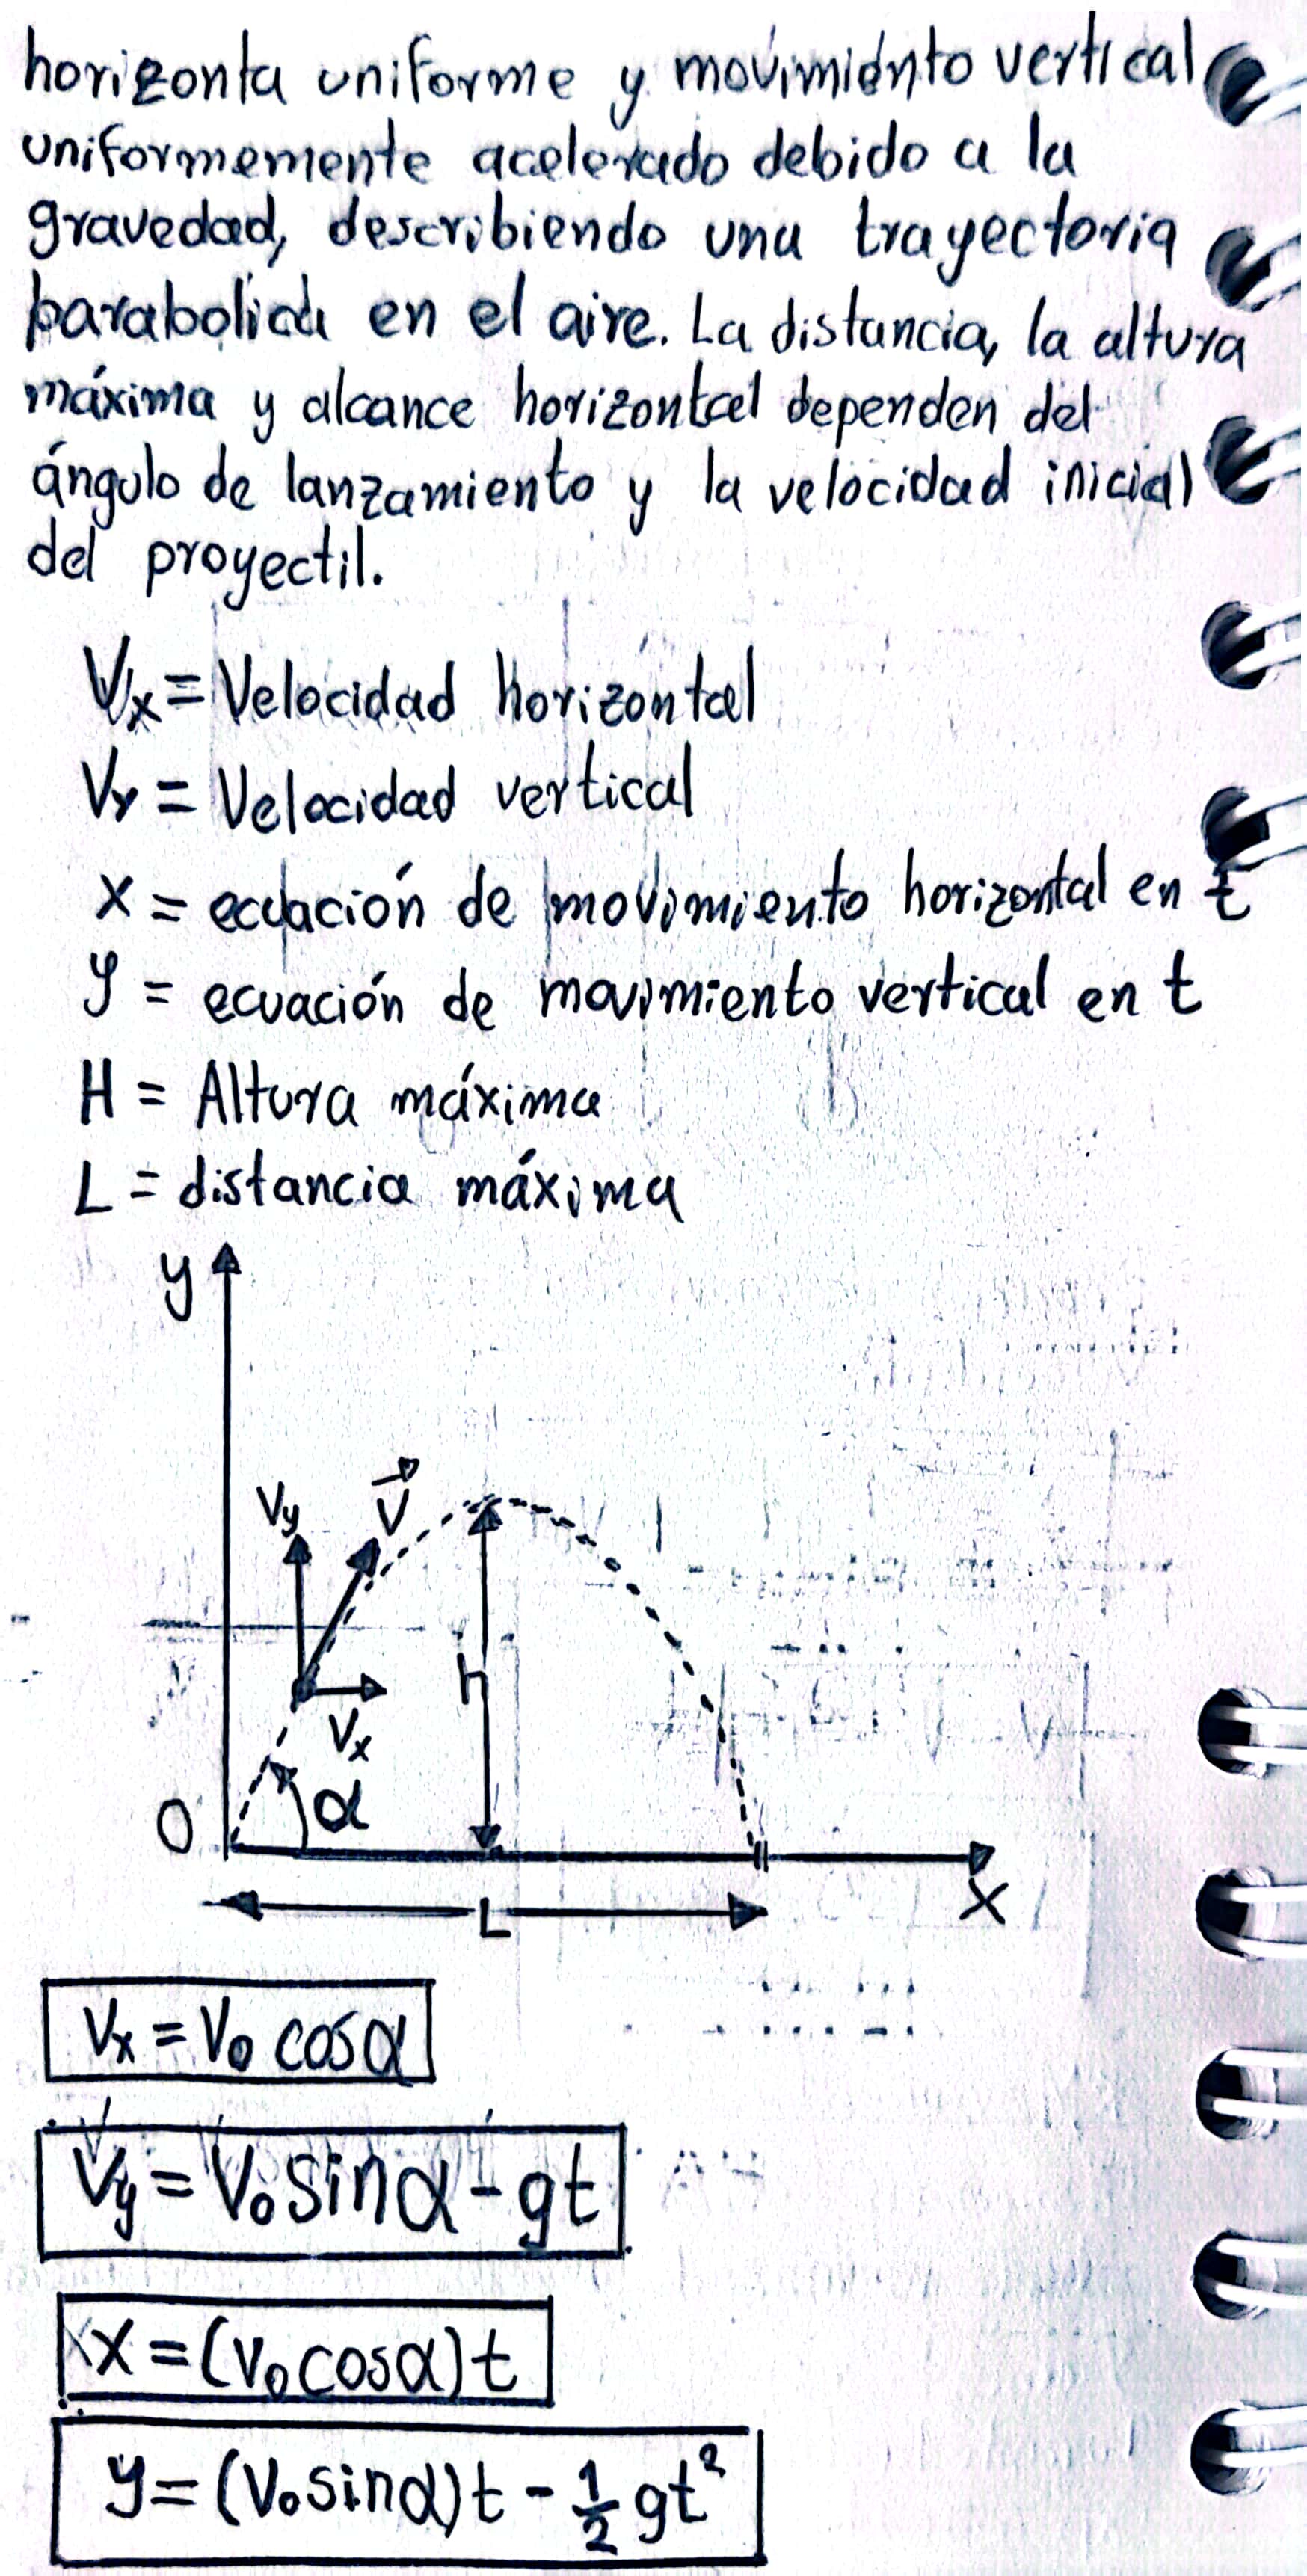 horizonta uniforme y movimiento vertical
uniformemente acelerado debido a la
gravedad, describiendo una trayectoria
parabolica en el aire. La distancia, la altura
máxima y alcance horizontal dependen del
ángulo de lanzamiento y la velocidad inicial
del proyectil.
Vx = Velocidad horizontal
Vy = Velocidad vertical
X = ecuación de movimiento horizontal en t
y = ecuación de movimiento vertical en t
H = Altura máxima
L = distancia máxima
y
Vy V⃗
h
Vx
O α
X
L
Vx = V₀ cosα
Vy = V₀ sinα - gt
X = (V₀ cosα)t
y = (V₀ sinα)t - ½ gt²